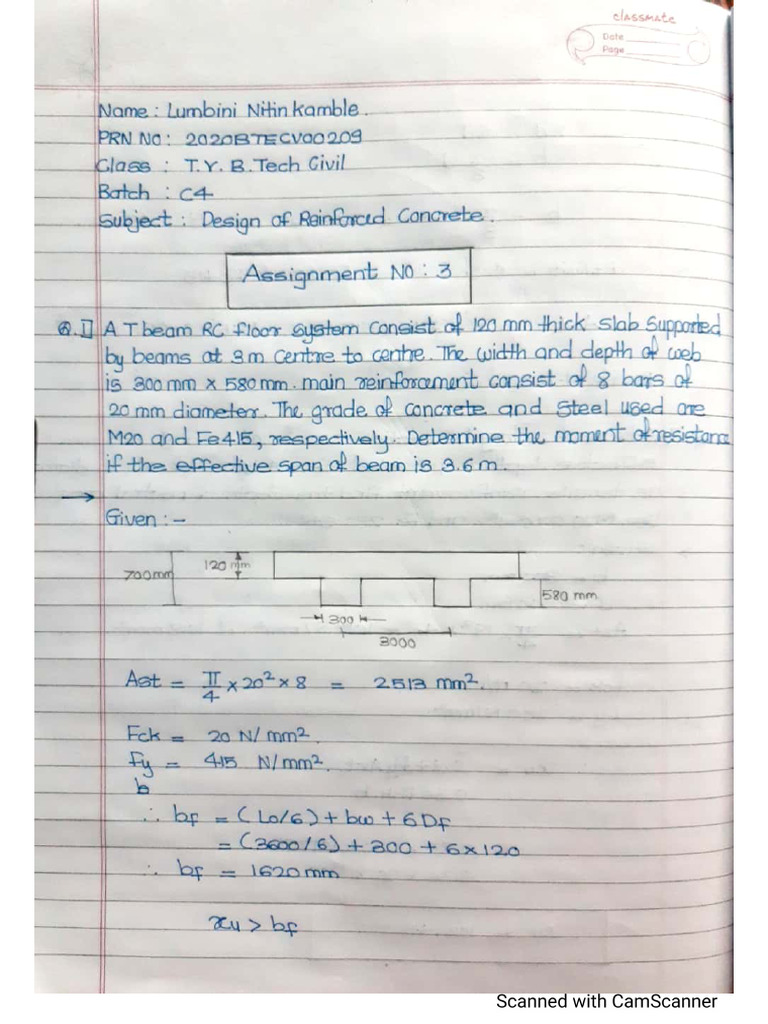 classmate
Date
Page
Name : Lumbini Nitin Kamble.
PRN NO : 2020BTECV00209
Class : T.Y. B.Tech Civil
Batch : C4
Subject : Design of Reinforced Concrete.
Assignment NO : 3
Q.1] A T beam RC floor system consist of 120 mm thick slab supported
by beams at 3m centre to centre. The width and depth of web
is 300 mm x 580 mm. main reinforcement consist of 8 bars of
20 mm diameter. The grade of concrete and steel used are
M20 and Fe415, respectively. Determine the moment of resistance
if the effective span of beam is 3.6 m.
→
Given :-
700mm 120 mm
580 mm
300
3000
Ast = π/4 x 20² x 8 = 2513 mm².
Fck = 20 N/mm².
Fy = 415 N/mm².
b
∴ bf = (Lo/6) + bw + 6Df
= (3600/6) + 300 + 6x120
∴ bf = 1620 mm
xu > bf
Scanned with CamScanner